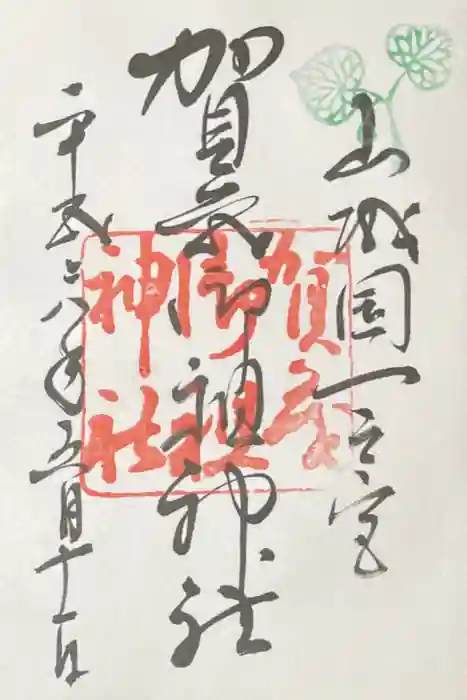 山城国一之宮
賀茂御祖神社
平成廿八年五月十一日
賀茂
御祖
神社